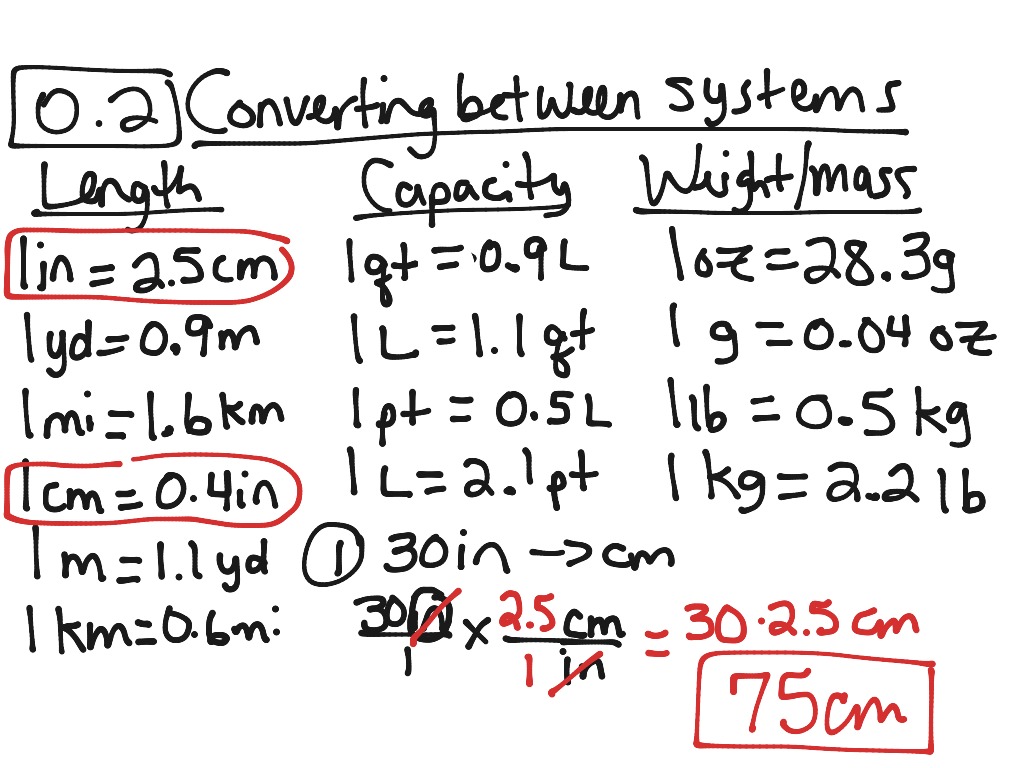 0.2 Converting between systems
Length Capacity Weight/mass
1in = 2.5cm 1qt = 0.9L 1oz = 28.3g
1yd = 0.9m 1L = 1.1qt 1g = 0.04oz
1mi = 1.6km 1pt = 0.5L 1lb = 0.5kg
1cm = 0.4in 1L = 2.1pt 1kg = 2.2lb
1m = 1.1yd ① 30in → cm
1km = 0.6mi 30in/1 x 2.5cm/1in = 30·2.5cm
75cm